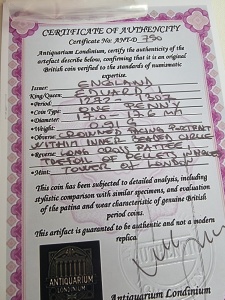 CERTIFICATE OF AUTHENCITY
Certificate No: ANT-D 750
Antiquarium Londinium, certify the authenticity of the
artefact described below, confirming that it is an original
British coin verified to the standards of numismatic
expertise.
Issuer: ENGLAND
King/Queen: EDWARD I
Period: 1272 - 1307
Coin Type: ONE PENNY
Diameter:
Weight:
Obverse: CROWNED KING PORTRAIT
WITHIN INNER CIRCLE
Reverse: LONG CROSS PATTEE
TREFOIL OF PELLETS IN ANGLES
Mint: TOWER OF LONDON
This coin has been subjected to detailed analysis, including
stylistic comparison with similar specimens, and evaluation
of the patina and wear characteristic of genuine British
period coins.
This artifact is guaranteed to be authentic and not a modern
replica.
ANTIQUARIUM
LONDINIUM
Antiquarium Londinium